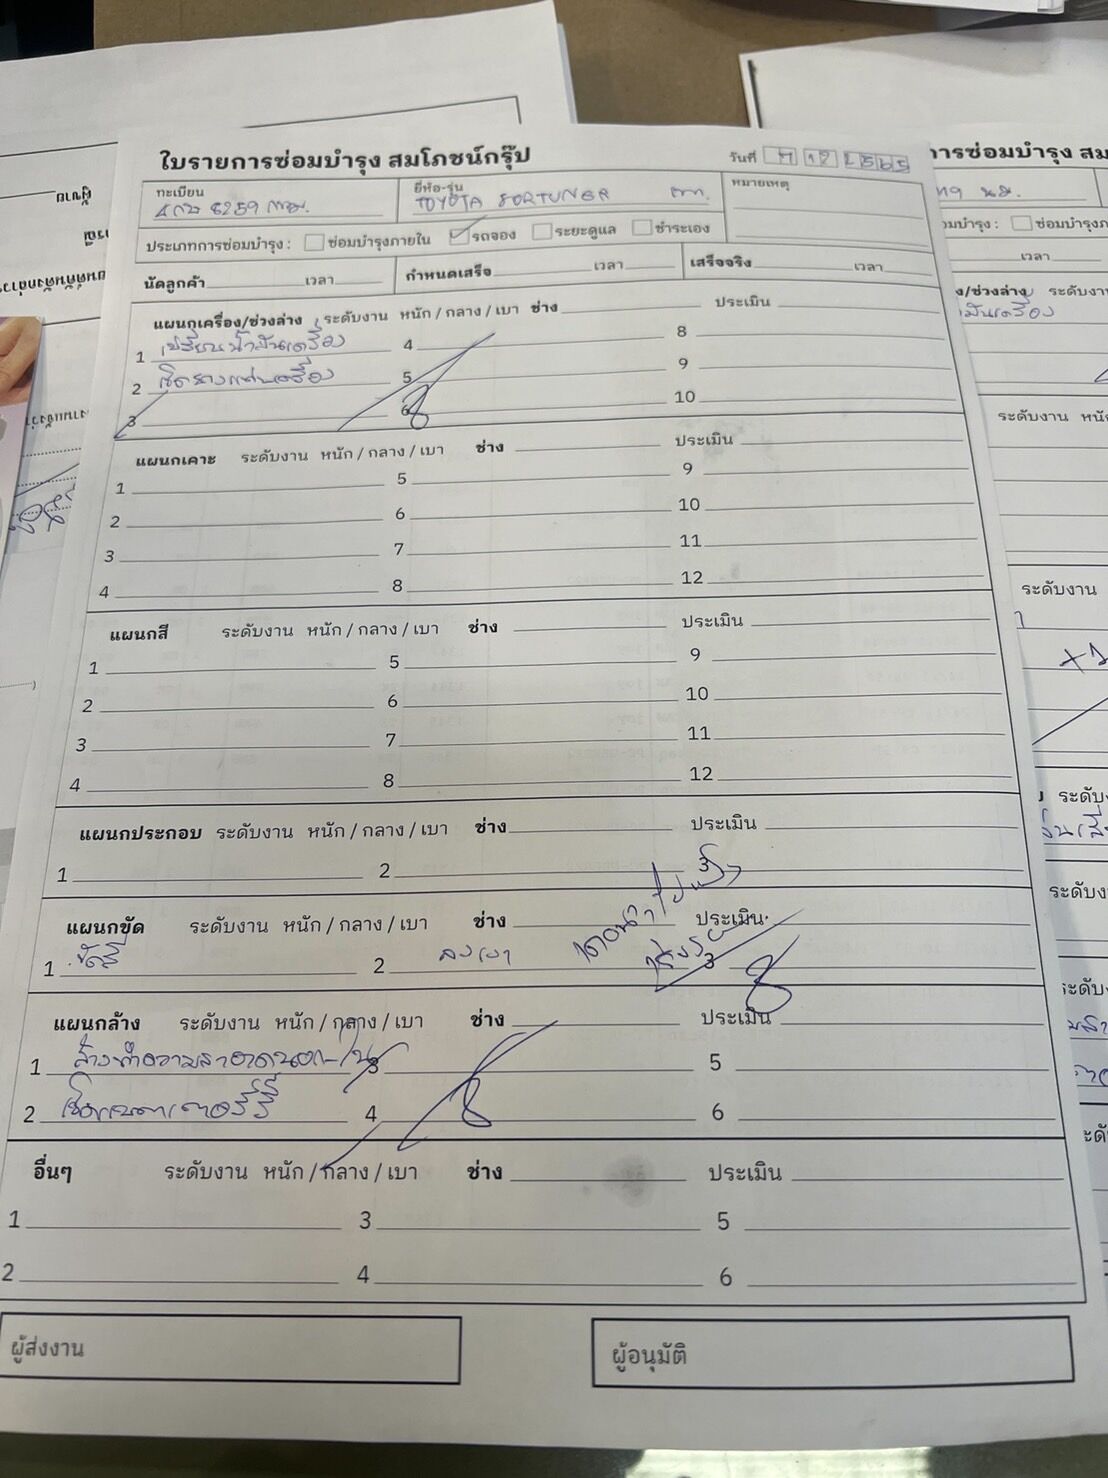 ใบรายการซ่อมบำรุง สมโภชน์กรุ๊ป
วันที่ 12 2565
ทะเบียน 8259 กทม.
ยี่ห้อ-รุ่น TOYOTA FORTUNER
หมายเหตุ
ประเภทการซ่อมบำรุง : ซ่อมบำรุงภายใน รถจอง ระยะดูแล ชำระเอง
นัดลูกค้า เวลา กำหนดเสร็จ เวลา เสร็จจริง เวลา
แผนกเครื่อง/ช่วงล่าง ระดับงาน หนัก / กลาง / เบา ช่าง ประเมิน
1 เปลี่ยนน้ำมันเครื่อง 4 8
2 เช็ดยางแท่นเครื่อง 5 9
3 6 10
แผนกเคาะ ระดับงาน หนัก / กลาง / เบา ช่าง ประเมิน
1 5 9
2 6 10
3 7 11
4 8 12
แผนกสี ระดับงาน หนัก / กลาง / เบา ช่าง ประเมิน
1 5 9
2 6 10
3 7 11
4 8 12
แผนกประกอบ ระดับงาน หนัก / กลาง / เบา ช่าง ประเมิน
1 2 3
แผนกขัด ระดับงาน หนัก / กลาง / เบา ช่าง ประเมิน
1 ขัดสี 2 ลบเงา 3
แผนกล้าง ระดับงาน หนัก / กลาง / เบา ช่าง ประเมิน
1 ล้างทำความสะอาดนอก-ใน 3 5
2 เช็คแบตเตอรี่ 4 6
อื่นๆ ระดับงาน หนัก / กลาง / เบา ช่าง ประเมิน
1 3 5
2 4 6
ผู้ส่งงาน
ผู้อนุมัติ